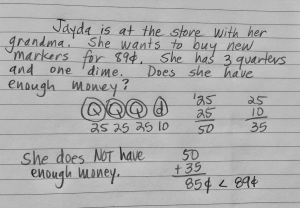 Jayda is at the store with her
grandma. She wants to buy new
markers for 89¢. She has 3 quarters
and one dime. Does she have
enough money?
Q Q Q d
25 25 25 10
'25
25
50
25
10
35
She does NOT have
enough money.
50
+ 35
85¢ < 89¢